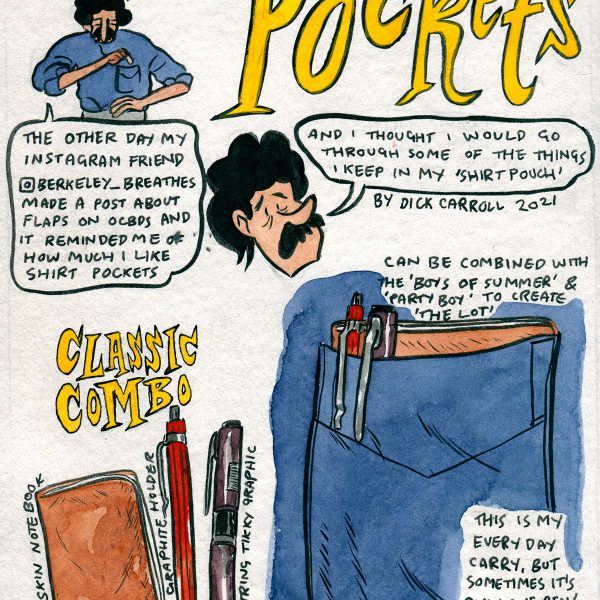 POCKETS
THE OTHER DAY MY
INSTAGRAM FRIEND
@BERKELEY_BREATHES
MADE A POST ABOUT
FLAPS ON OCBDS AND
IT REMINDED ME OF
HOW MUCH I LIKE
SHIRT POCKETS
AND I THOUGHT I WOULD GO
THROUGH SOME OF THE THINGS
I KEEP IN MY 'SHIRT POUCH'
BY DICK CARROLL 2021
CAN BE COMBINED WITH
THE 'BOYS OF SUMMER' &
'PARTY BOY' TO CREATE
'THE LOT'
CLASSIC
COMBO
SKIN NOTEBOOK
GRAPHITE HOLDER
TIKKY GRAPHIC
THIS IS MY
EVERY DAY
CARRY, BUT
SOMETIMES IT'S